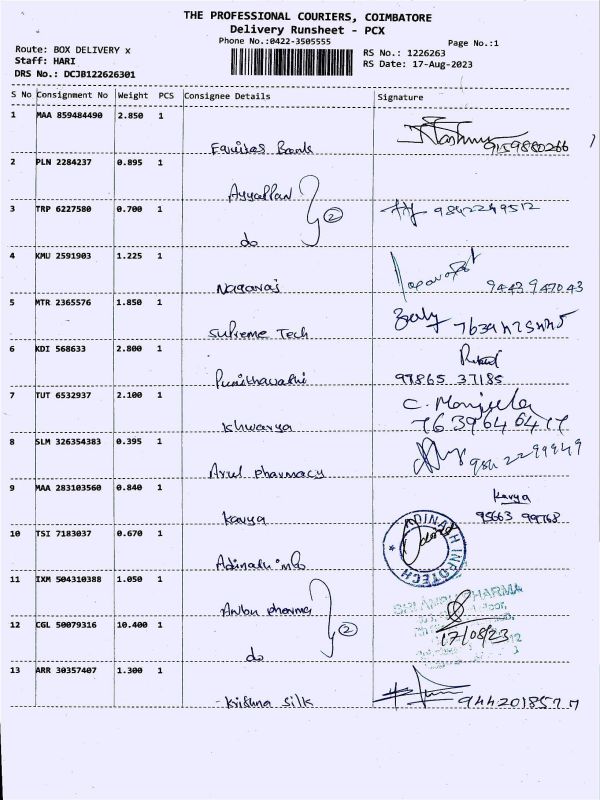 THE PROFESSIONAL COURIERS, COIMBATORE
Delivery Runsheet - PCX
Phone No.:0422-3505555
Page No.:1
Route: BOX DELIVERY x
Staff: HARI
DRS No.: DCJB122626301
RS No.: 1226263
RS Date: 17-Aug-2023
S No Consignment No Weight PCS Consignee Details Signature
1 MAA 859484490 2.850 1
Equitas Bank 9159880266
2 PLN 2284237 0.895 1
Ayyappan
3 TRP 6227580 0.700 1 2 9842249512
do
4 KMU 2591903 1.225 1
Nagaraj 9443947043
5 MTR 2365576 1.850 1
Supreme Tech
6 KDI 568633 2.800 1
Punithavathi 97865 37185
7 TUT 6532937 2.100 1 C. Manjula
Ishwarya
8 SLM 326354383 0.395 1
Arul pharmacy
9 MAA 283103560 0.840 1 Kavya
Kavya 95663 99768
10 TSI 7183037 0.670 1 ADINATH INFOTECH
Adinath info
11 IXM 504310388 1.050 1 PHARMA
Anbu pharma
12 CGL 50079316 10.400 1 2 17/08/23
do
13 ARR 30357407 1.300 1
Krishna silk